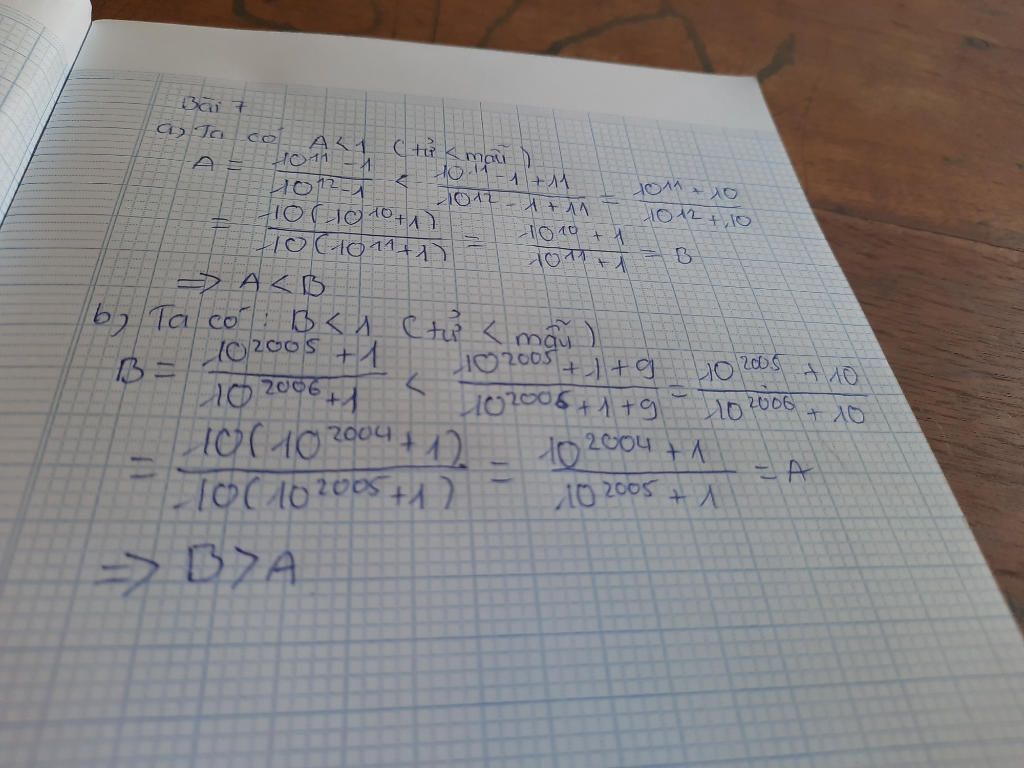 Bài 7
a) Ta có A < 1 (tử < mẫu)
A = \frac{10^{11} - 1}{10^{12} - 1} < \frac{10^{11} - 1 + 11}{10^{12} - 1 + 11} = \frac{10^{11} + 10}{10^{12} + 10}
= \frac{10(10^{10} + 1)}{10(10^{11} + 1)} = \frac{10^{10} + 1}{10^{11} + 1} = B
⇒ A < B
b) Ta có : B < 1 (tử < mẫu)
B = \frac{10^{2005} + 1}{10^{2006} + 1} < \frac{10^{2005} + 1 + 9}{10^{2006} + 1 + 9} = \frac{10^{2005} + 10}{10^{2006} + 10}
= \frac{10(10^{2004} + 1)}{10(10^{2005} + 1)} = \frac{10^{2004} + 1}{10^{2005} + 1} = A
⇒ B > A